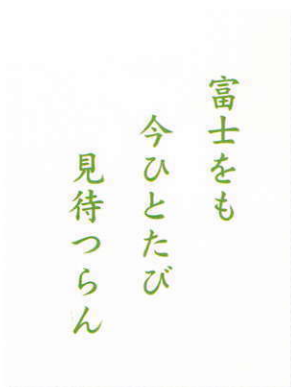 富士をも
今ひとたび
見待つらん